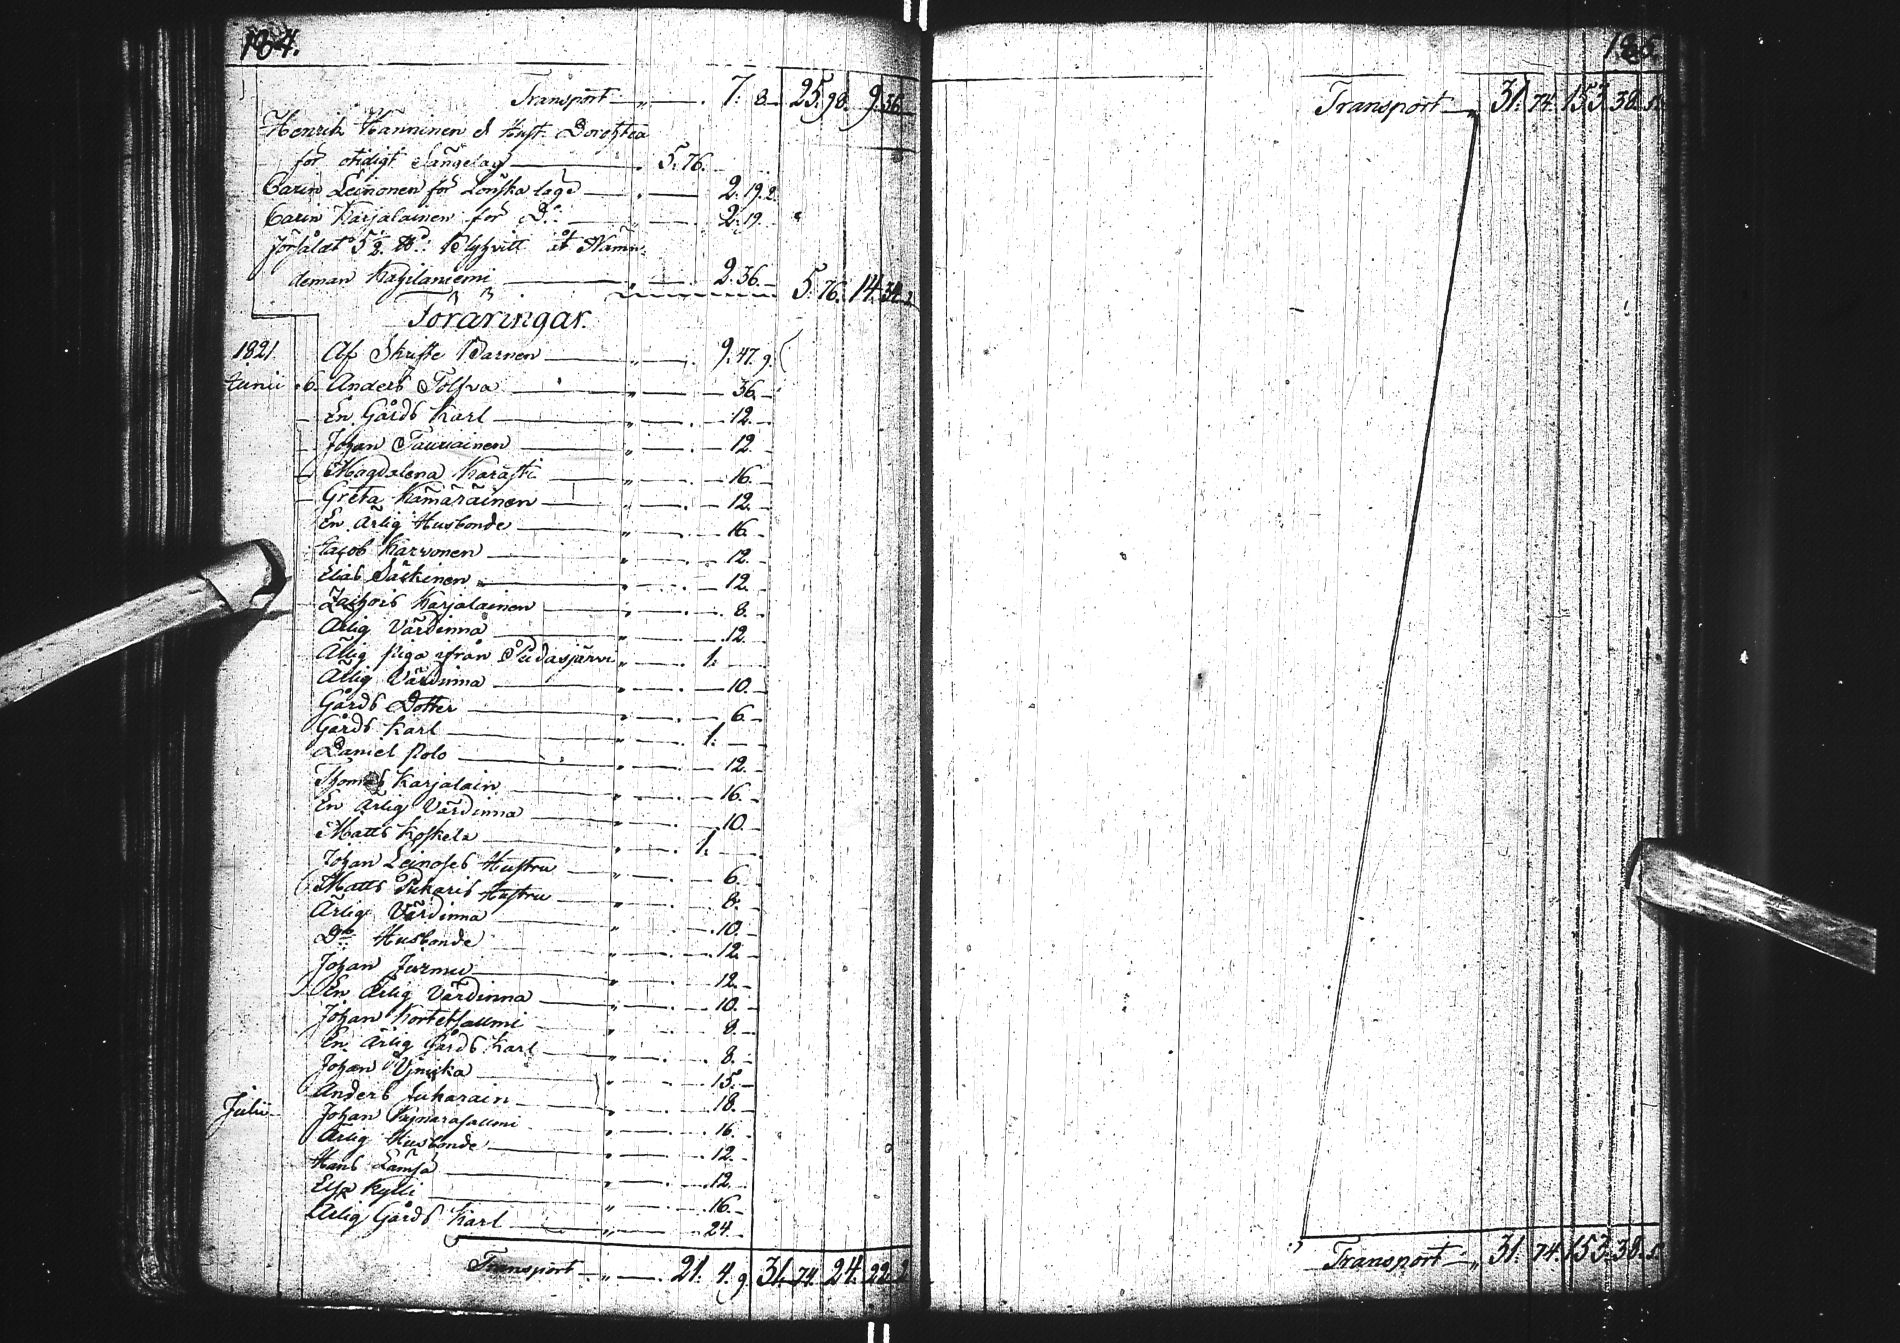 184.
Transport „ — . 7. 8. — 25. 98. 9 36.
Henrik Hänninen & Hust. Dorothea
för otidigt Sängelag — . 5. 76.
Carin Leinonen för Lönska läge — . — 2. 19. 2.
Carin Karjalainen för D:o — 2. 19.
försåldt 5½ ℔: Blyhvitt åt Nämn-
deman — „ — . 2. 36. — 5. 76. 14. 34. 2
Föräringar.
1821. Af Skrifte Barnen — „ — . 9. 47. 9.
Junii 6. Anders Tolfva — „ — 36. —
En Gårds Karl — „ — . — 12. —
Johan Tauriainen — „ — . — 12. —
Magdalena — „ — 16. —
Greta Kämäräinen — „ — . — 12. —
En ärlig Husbonde — „ — 16. —
Jacob Karvonen — „ — . — 12. —
Elias Säkkinen — „ — . — 12. —
Karjalainen — „ — . — 8. —
Ärlig Värdinna — „ — . 12. —
Ärlig piga ifrån Pudasjärvi „ — . 1. —
Ärlig Värdinna — „ — . — 10. —
Gårds Dotter — „ — . — 6. —
Gårds Karl — „ — . 1. —
Daniel Polo — „ — . — 12. —
Thomas Karjalain — „ — . — 16. —
En ärlig Värdinna — „ — . — 10. —
Matts Koskela — „ — . 1. —
Johan Leinoses Hustru — „ — . — 6. —
Matts Pukaris Hustru — „ — . — 8. —
Ärlig Värdinna — „ — . — 10. —
D:o Husbonde — „ — . — 12. —
Johan Jurmu — „ — . — 12. —
En ärlig Värdinna — „ — . — 10. —
Johan Kortetsallmi — „ — . — 8. —
En ärlig Gårds Karl — „ — . — 8. —
Johan — „ — . — 15. —
Julii Anders Jukarain — „ — . — 18. —
Johan — „ — . — 16. —
Ärlig Husbonde — „ — . — 12. —
Hans Lämsä — „ — . — 12. —
Elsa Kylli — „ — . — 16. —
Ärlig Gårds Karl — „ — . — 24. —
Transport — „ — . 21. 4. 9. 31. 74. 24. 22. 2
185.
Transport — „ 31. 74. 153. 38.
Transport — „ 31. 74. 153. 38.